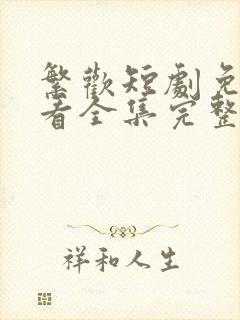 繁歡短劇免
看全集完整
祥和人生